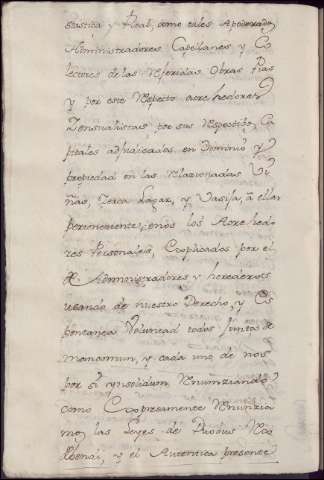 siastica y Real, como tales Apoderados
Administradores Capellanes y Co
lectores de las Referidas Obras Pias
y por este Respecto acrehedoras
Zensualistas, por sus Respectibos Ca
pitales adjudicados en Dominio y
propiedad en las Relazionadas Vi
ñas, Tierra Lagar, y Vasija, a ellas
perteneciente, nos los Acrehedo
res Personales, Explicados por el
Administradores y herederos
usando de nuestro Derecho, y Es
pontanea Voluntad todos juntos de
mancomun, y cada uno de nos
por si ynsolidum Renunziando
como Expresamente Renunzia
mos las Leyes de Duobus Re
x debendi, y el Autentica presente